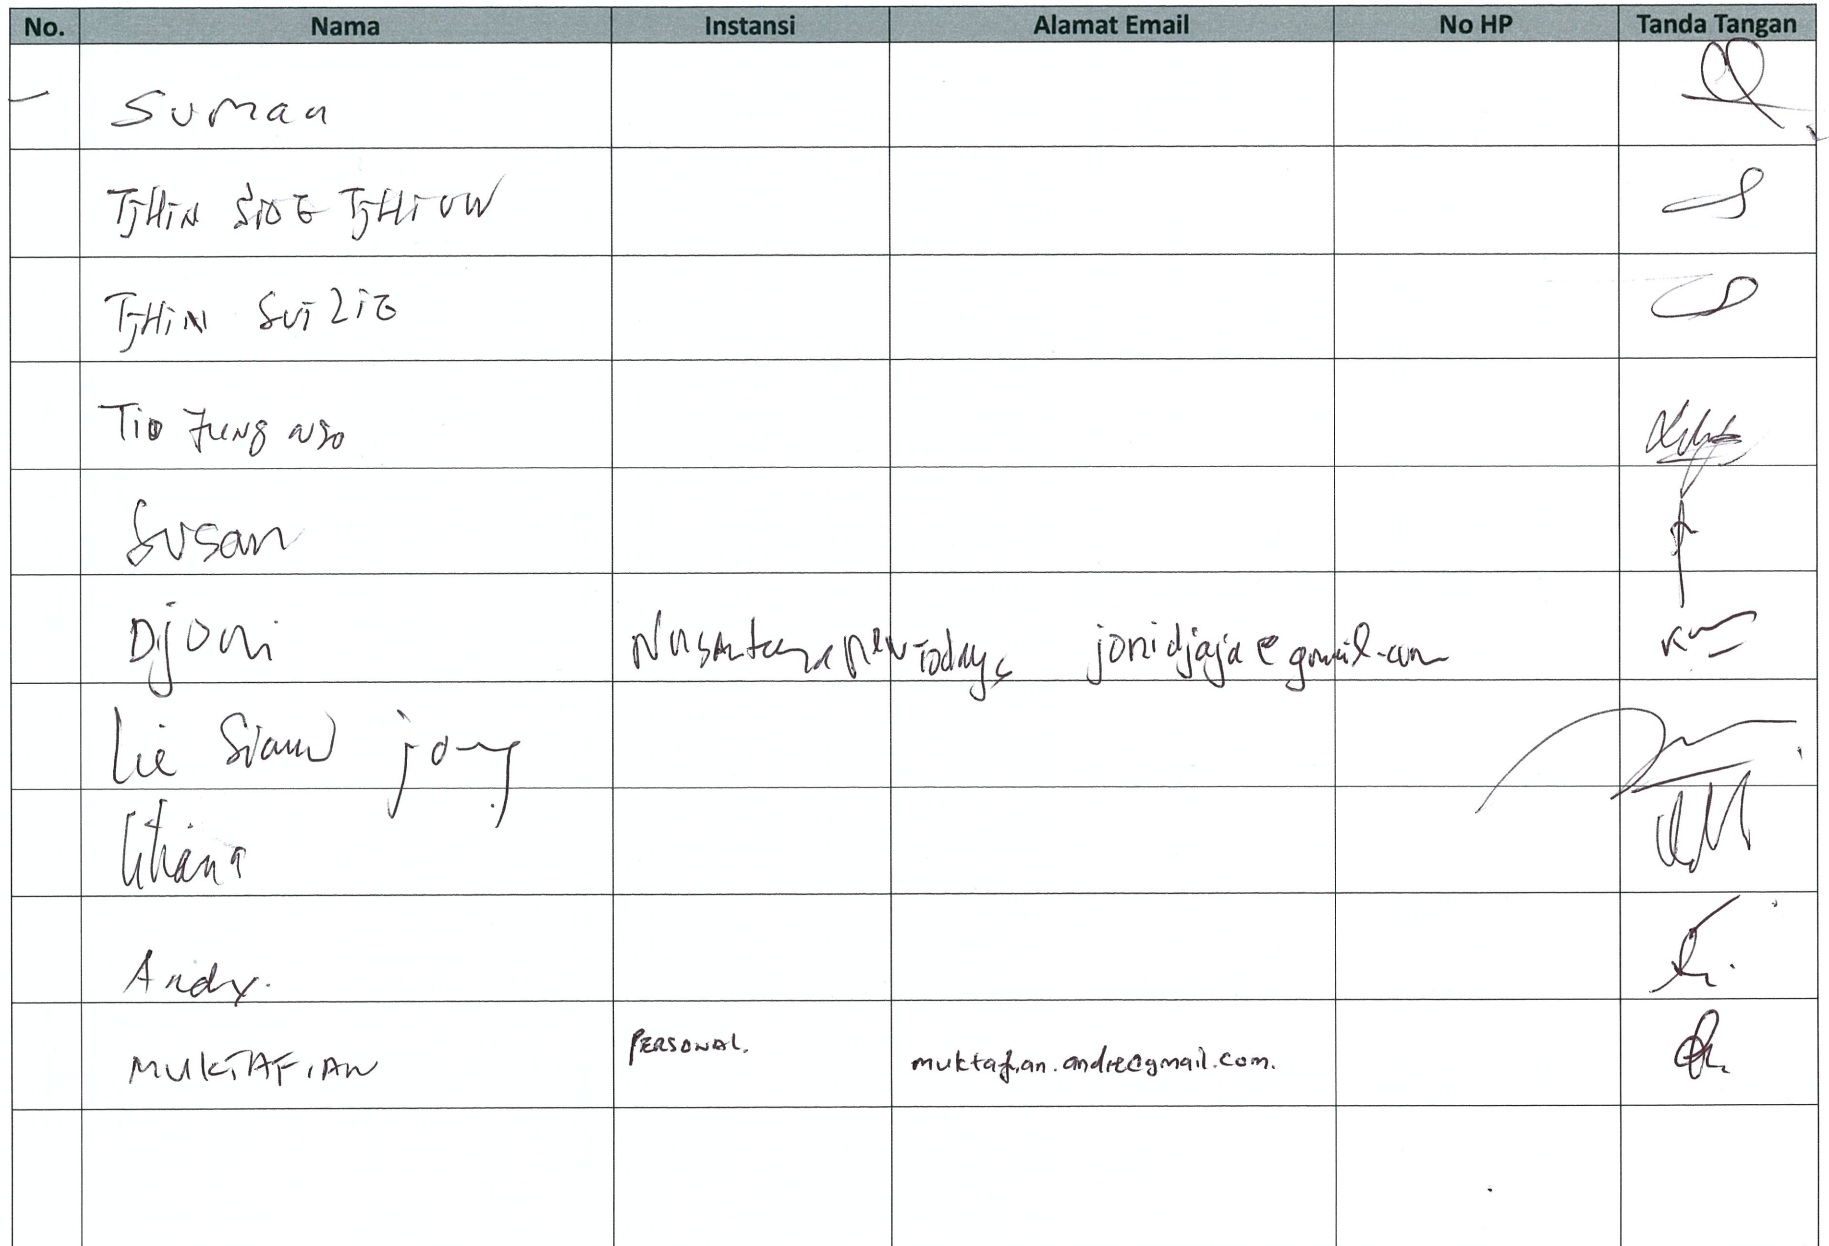 No. Nama Instansi Alamat Email No HP Tanda Tangan
Suman
TJHIN SIOE TJHIUW
TJHIN SUI LIE
Tio Jung Ngo
Susan
Djoni jonidjaja@gmail.com
Lie Siauw jong
Andy.
MUKTAFIAN PERSONAL. muktafian.andre@gmail.com.